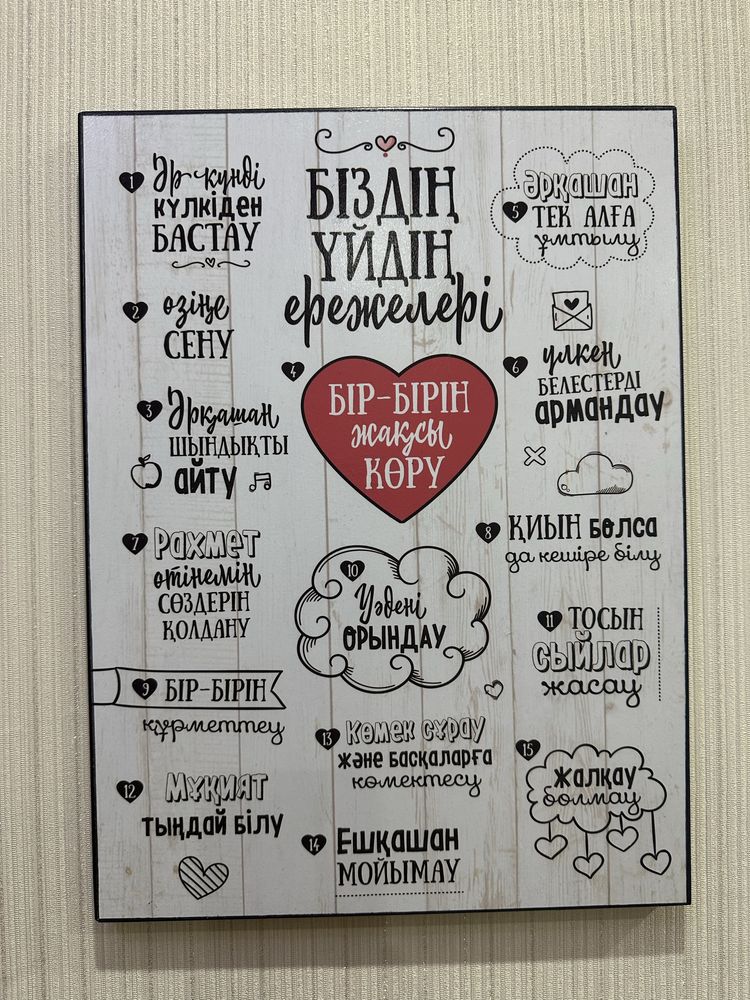 БІЗДІҢ
ҮЙДІҢ
ережелері
1 Әр күнді
күлкіден
БАСТАУ
2 өзіңе
СЕНУ
3 Әрқашан
ШЫНДЫҚТЫ
айту
4 БІР-БІРІН
жақсы
КӨРУ
5 Әрқашан
ТЕК АЛҒА
ұмтылу
6 үлкен
БЕЛЕСТЕРДІ
армандау
7 Рахмет
өтінемін
СӨЗДЕРІН
ҚОЛДАНУ
8 ҚИЫН болса
да кешіре білу
9 БІР-БІРІН
құрметтеу
10 Уәдені
ОРЫНДАУ
11 ТОСЫН
СЫЙЛАР
жасау
12 Мұқият
тыңдай білу
13 Көмек сұрау
және басқаларға
көмектесу
14 Ешқашан
МОЙЫМАУ
15 жалқау
болмау